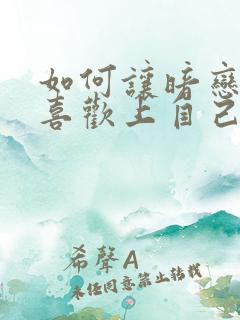 如何讓暗戀
喜歡上自己
希聲A
未經同意禁止轉載